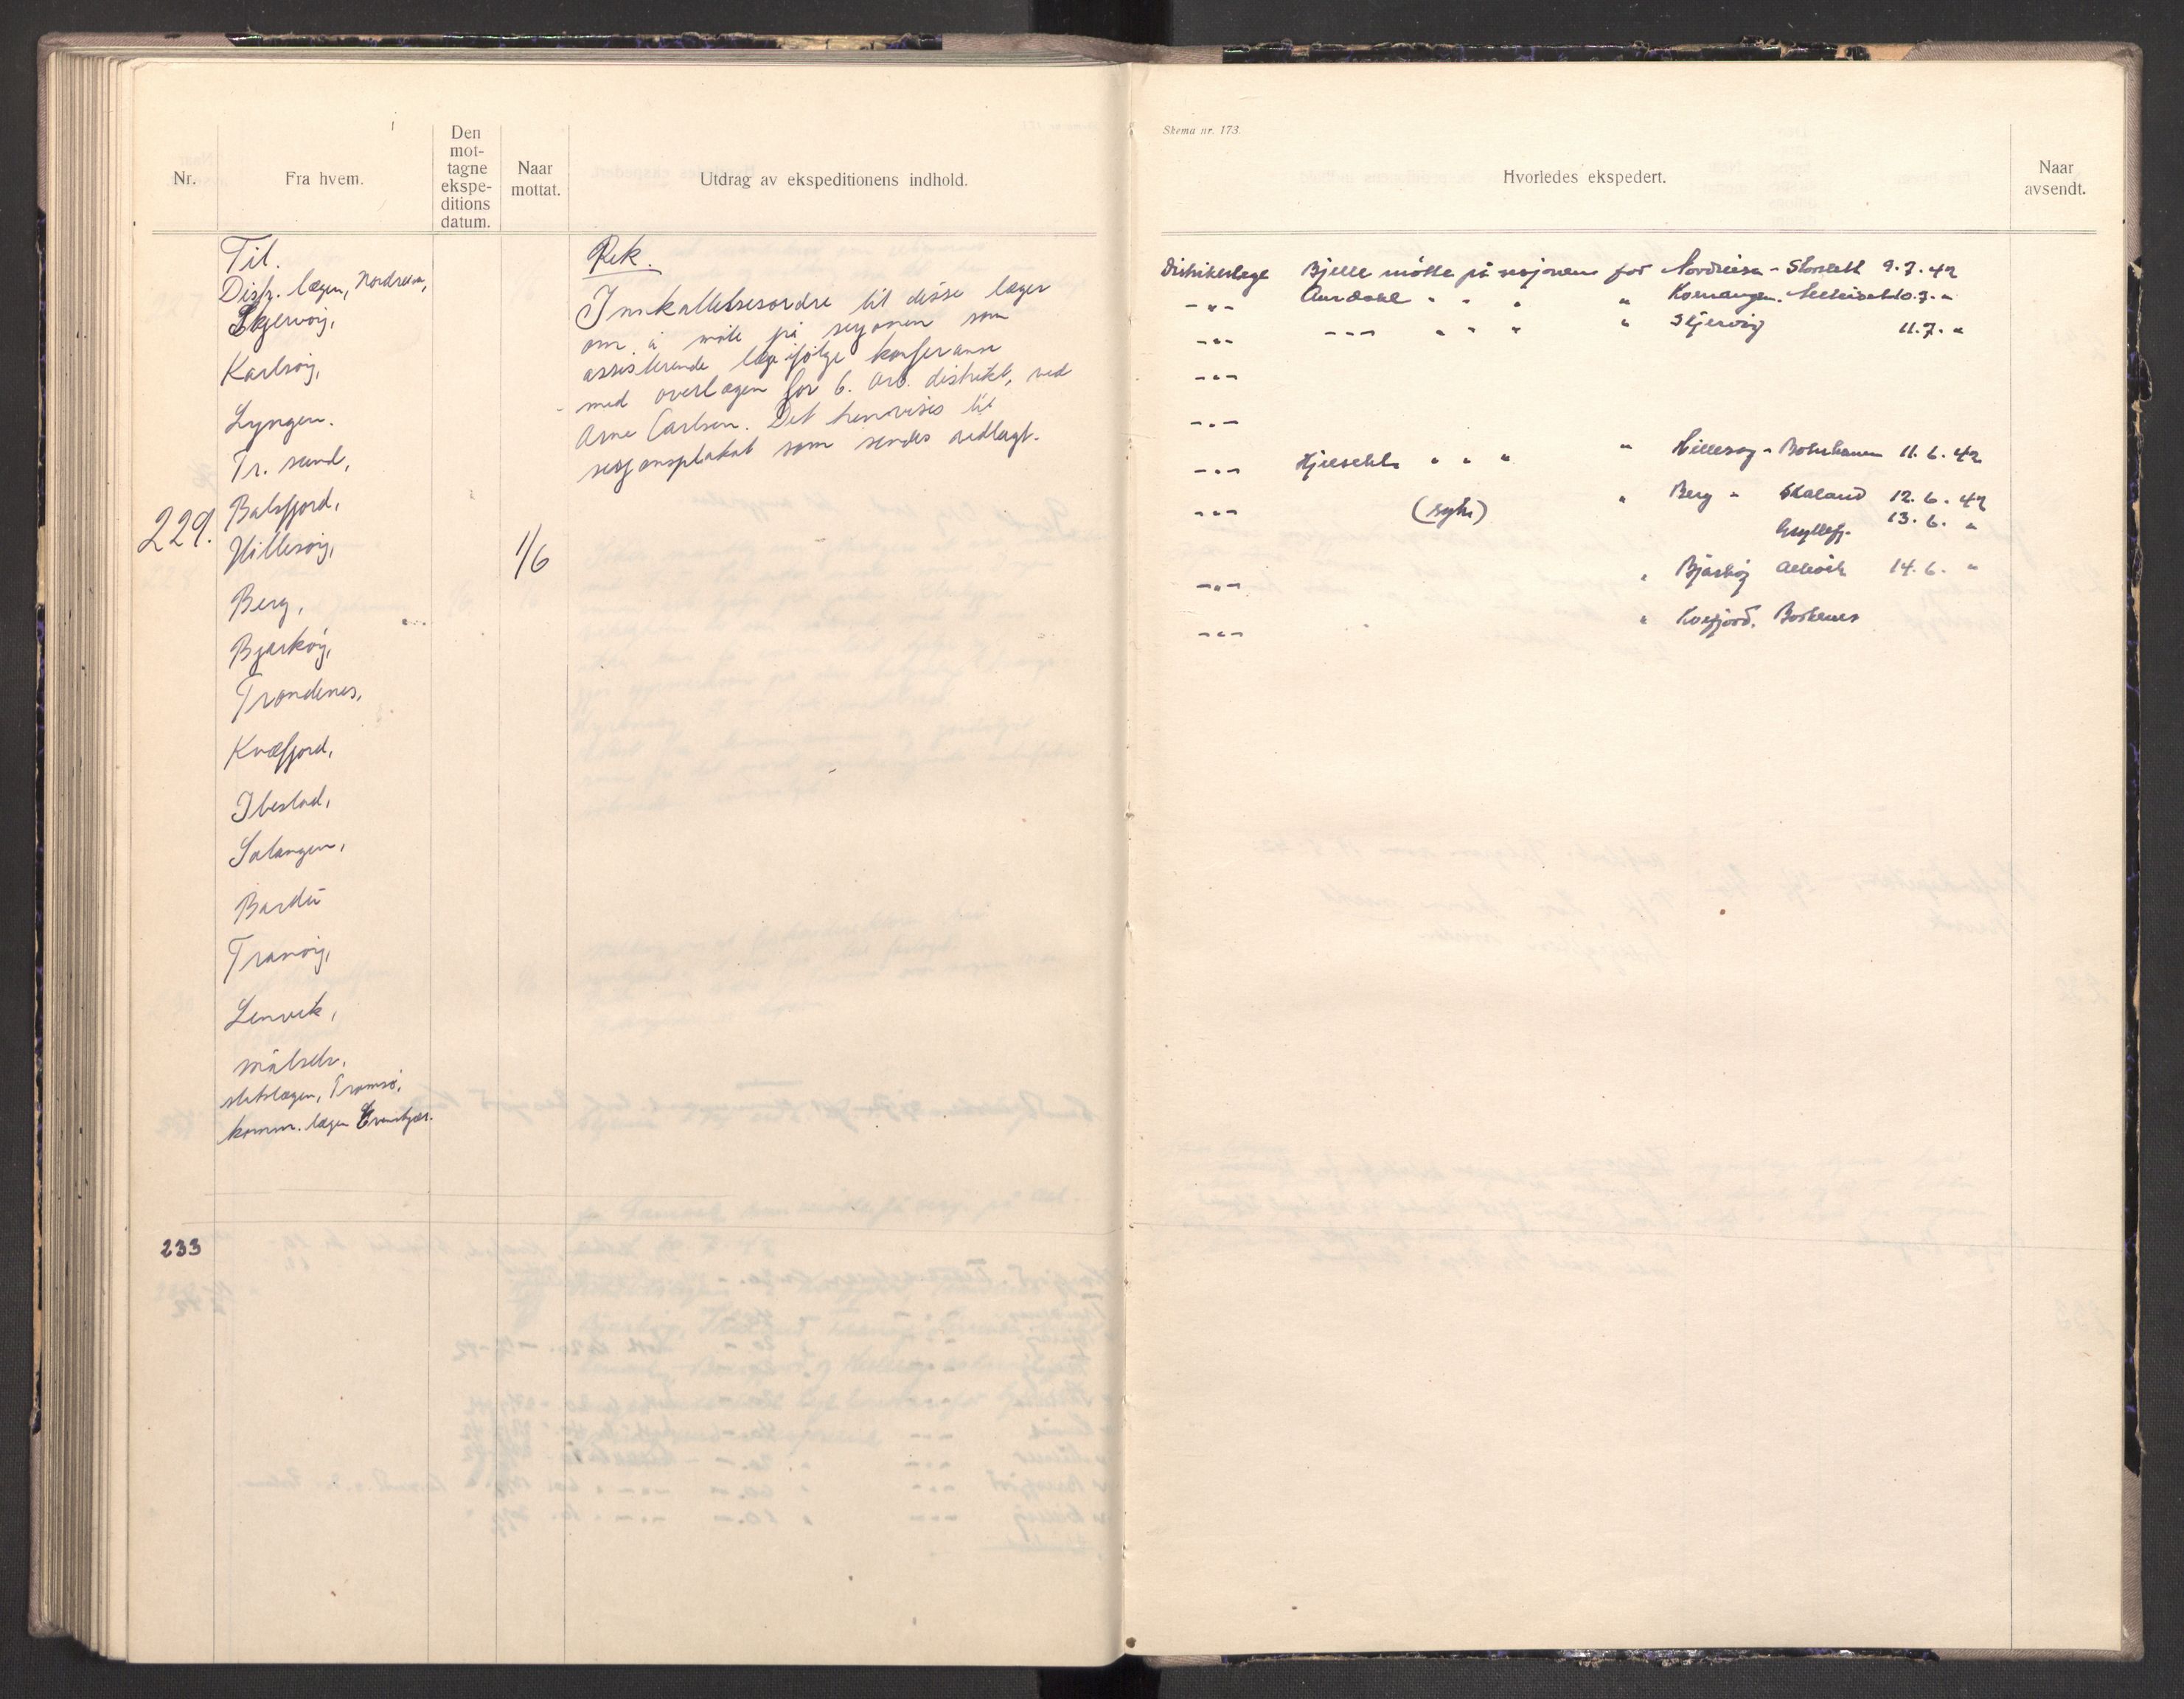 Nr.
Fra hvem.
Den
mot-
tagne
ekspe-
ditions
datum.
Naar
mottat.
Utdrag av ekspeditionens indhold.
Til.
Distr. lægen, Nordreisa,
Skjervøy,
Karlsøy,
Lyngen.
Tr. sund,
Balsfjord,
229.
Hillesøy,
1/6
Berg,
Bjarkøy,
Trondenes,
Kvæfjord,
Ibestad,
Salangen,
Bardu
Tranøy,
Lenvik,
målselv.
statslægen, Tromsø,
komm. lægen
233
Rek.
Innkallelsesordre til disse læger
om å møte på sesjonen som
assisterende læge ifølge konferanse
med overlægen for 6. arb. distrikt, ved
Arne Carlsen. Det henvises til
sesjonsplakat som sendes vedlagt.
Skema nr. 173.
Hvorledes ekspedert.
Naar
avsendt.
Distriktslæge Bjelle møtte på sesjonen for Nordreisa - Storslett 9.7.42
-"- Aurdahl " " " " Kvænangen. 10.7. "
-"- --- " " " " Skjervøy 11.7. "
-"-
-"-
-"- " " " " Hillesøy - 11.6.42
-"- (syk) " Berg - Skaland 12.6.42
Gryllefj. 13.6. "
-"- " Bjarkøy 14.6. "
-"- " Kvæfjord. Borkenes